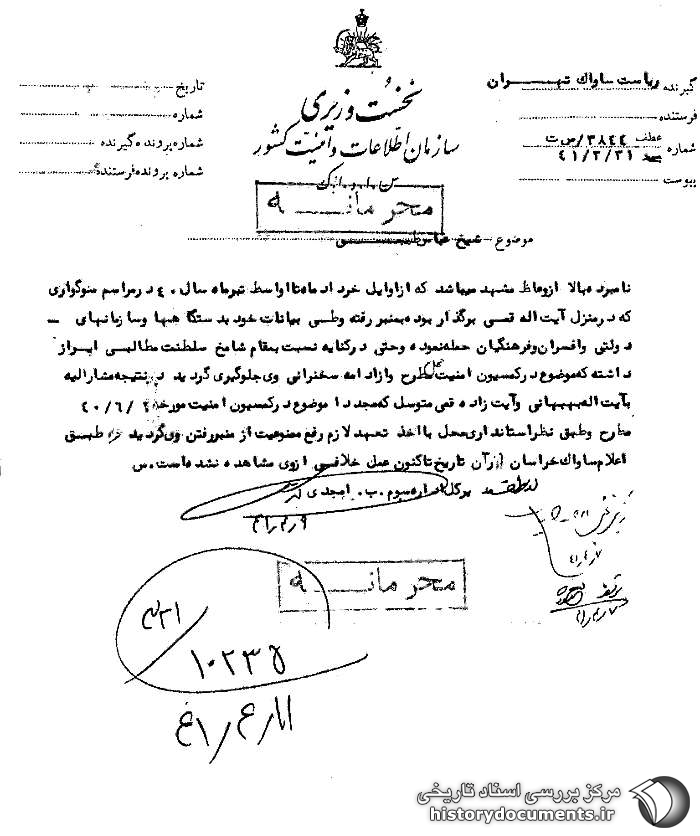 نخست وزیری
سازمان اطلاعات و امنیت کشور
س.ا.و.ا.ک
گیرنده ریاست ساواک تهران
فرستنده
شماره عطف ۳۸۴۴/س ت
۴۱/۳/۳۱
پیوست
تاریخ
شماره
شماره پرونده گیرنده
شماره پرونده فرستنده
محرمانه
موضوع شیخ عباس طبسی
نامبرده بالا از وعاظ مشهد میباشد که از اوایل خرداد ماه تا اواسط تیرماه سال ۴۰ در مراسم سوگواری
که در منزل آیت اله قمی برگذار بوده بمنبر رفته و طی بیانات خود بدستگاهها و سازمانهای
دولتی و افسران و فرهنگیان حمله نموده و حتی در کنایه نسبت بمقام شامخ سلطنت مطالبی ابراز
داشته که موضوع در کمسیون امنیت محل مطرح و از ادامه سخنرانی وی جلوگیری گردید در نتیجه مشارالیه
بآیت اله بهبهانی و آیت زاده قمی متوسل که مجددا موضوع در کمسیون امنیت مورخه /۴۰/۶
مطرح و طبق نظر استانداری محل با اخذ تعهد لازم رفع ممنوعیت از منبر رفتن وی گردید طبق
اعلام ساواک خراسان از آن تاریخ تاکنون عمل خلافی از وی مشاهده نشده است. س
مدیر کل اداره سوم. ب. امجدی
محرمانه
۱۰۲۳۵
مرکز بررسی اسناد تاریخی
historydocuments.ir